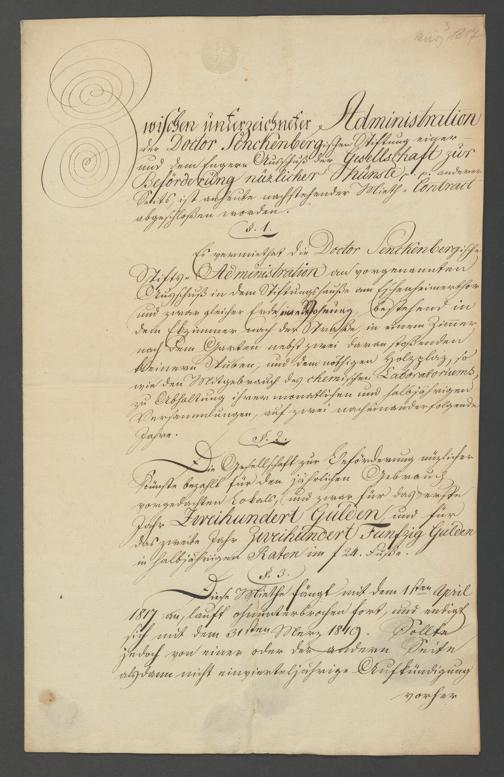 März 1817
Zwischen unterzeichneter Administration
der Doctor Senckenbergischen Stiftung einer
und dem Engern Ausschuß der Gesellschaft zur
Beförderung nüzlicher Künste, p. p. anderer
Seits, ist anheute nachstehender Mieth-Contract
abgeschloßen worden.
§. 1.
Es vermiethet die Doctor Senckenbergische
Stifts-Administration an vorgenannten
Ausschuß in dem Stiftungshauße am Eschenheimerthor
und zwar gleicher Erde eine Wohnung, bestehend in
dem Eckzimmer nach der Straße, in einem Zimmer
nach dem Garten nebst zwei daran stoßenden
kleinern Stuben, und dem nöthigen Holzplaz, so
wie den Mitgebrauch des chemischen Laboratoriums,
zu Abhaltung ihrer monatlichen und halbjährigen
Versammlungen, auf zwei nacheinanderfolgende
Jahre.
§. 2.
Die Gesellschaft zur Beförderung nüzlicher
Künste bezahlt für den jährlichen Gebrauch
vorgedachten Lokals, und zwar für das erste
Jahr Zweihundert Gulden und für
das zweite Jahr Zweihundert Fünfzig Gulden
in halbjährigen Raten im f 24. Fuße.
§. 3.
Diese Miethe fängt mit dem 1sten April
1817 an, lauft ohnunterbrochen fort, und endigt
sich mit dem 31sten Merz 1819. Sollte
jedoch von einer oder der andern Seite
alsdann nicht einvierteljährige Aufkündigung
vorher